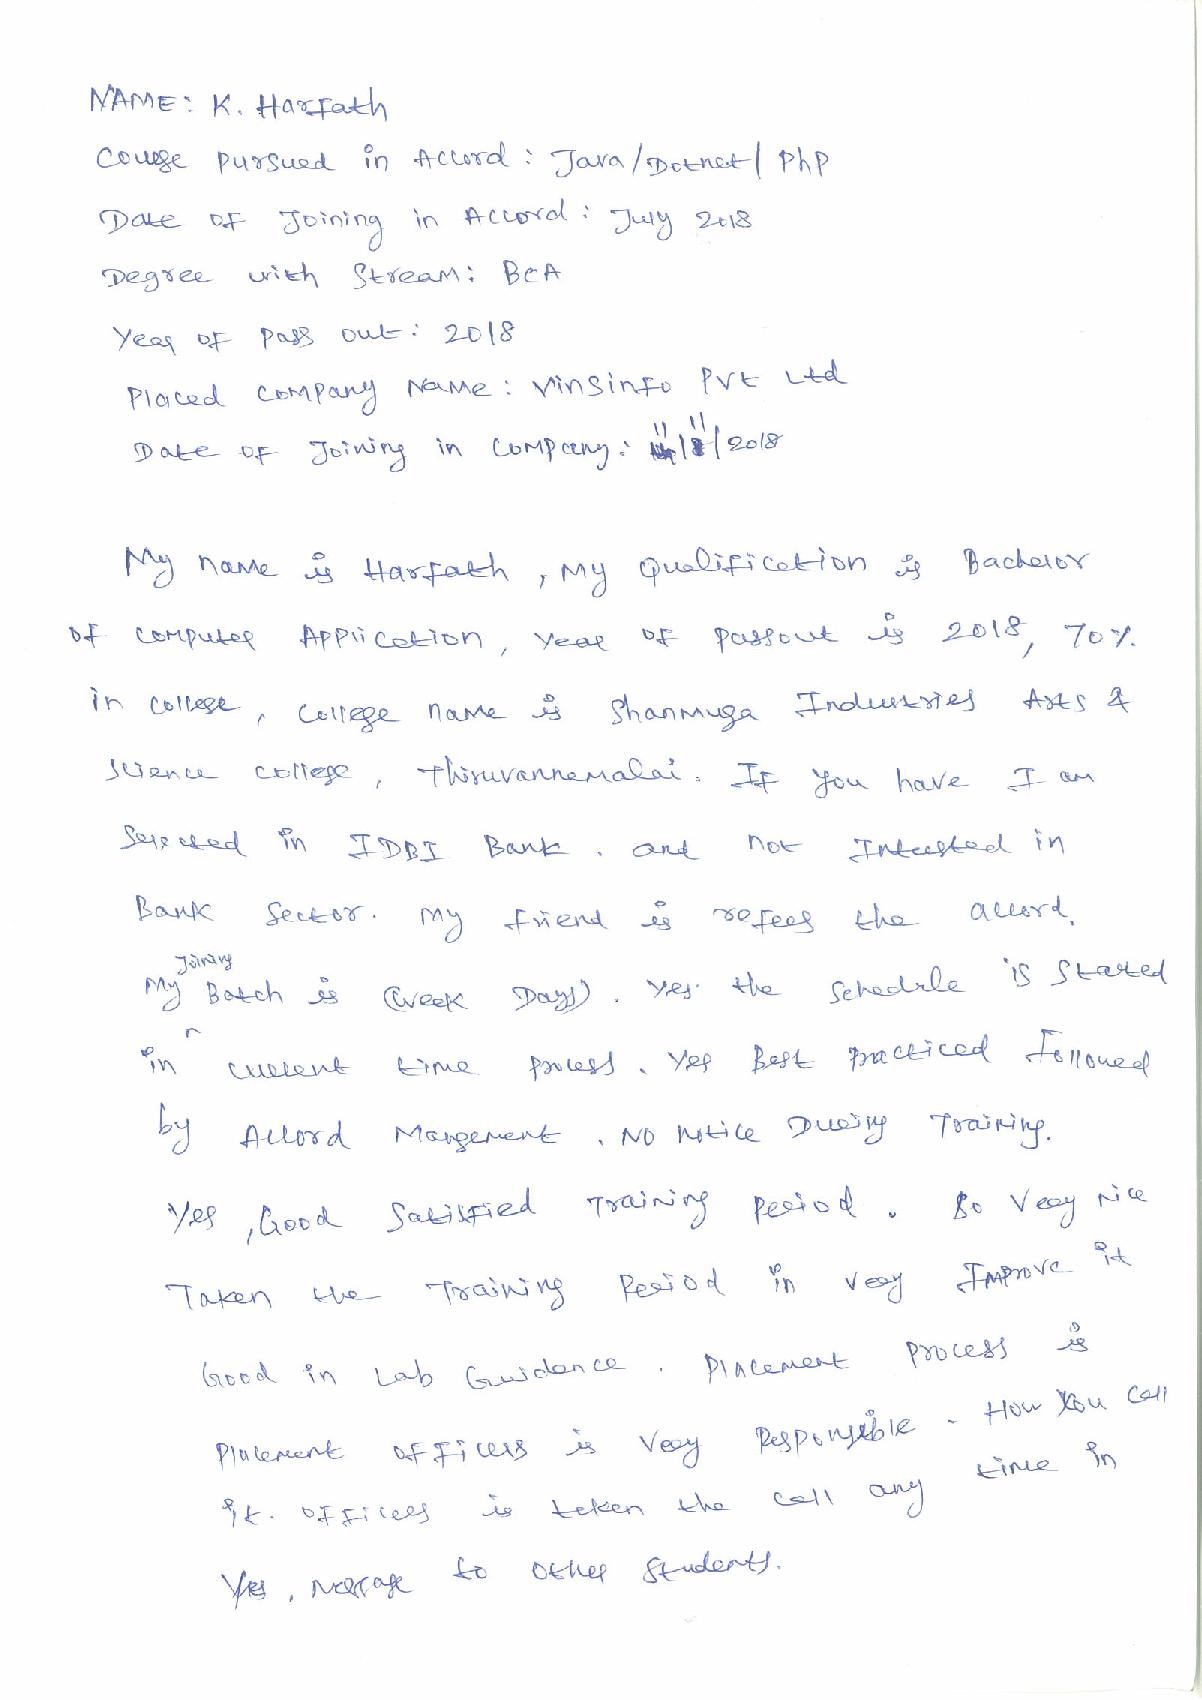 NAME: K. Harfath
Course pursued in Accord : Java/Dotnet/ PhP
Date of Joining in Accord : July 2018
Degree with Stream: BCA
Year of pass out : 2018
Placed Company Name : VinSinfo Pvt Ltd
Date of Joining in Company : 11/11/2018
My name is Harfath , My Qualification is Bachelor
of computer Application, year of passout is 2018, 70%
in college , college name is Shanmuga Industries Arts &
Science college , Thiruvannamalai. If you have I am
Selected in IDBI Bank . and not Intrested in
Bank Sector. My friend is refees the accord.
My Joining Batch is (Week Days) . Yes the Schedule is Started
in current time process . Yes Best practiced Followed
by Accord Mangement . No notice During Training.
Yes , Good Satisfied Training Period . So Very nice
Taken the Training Period in very Improve it
Good in Lab Guidance . Placement Process is
Placement officers is Very Responsible . How You Call
it. officers is taken the call any time in
Yes , Message to other Students.